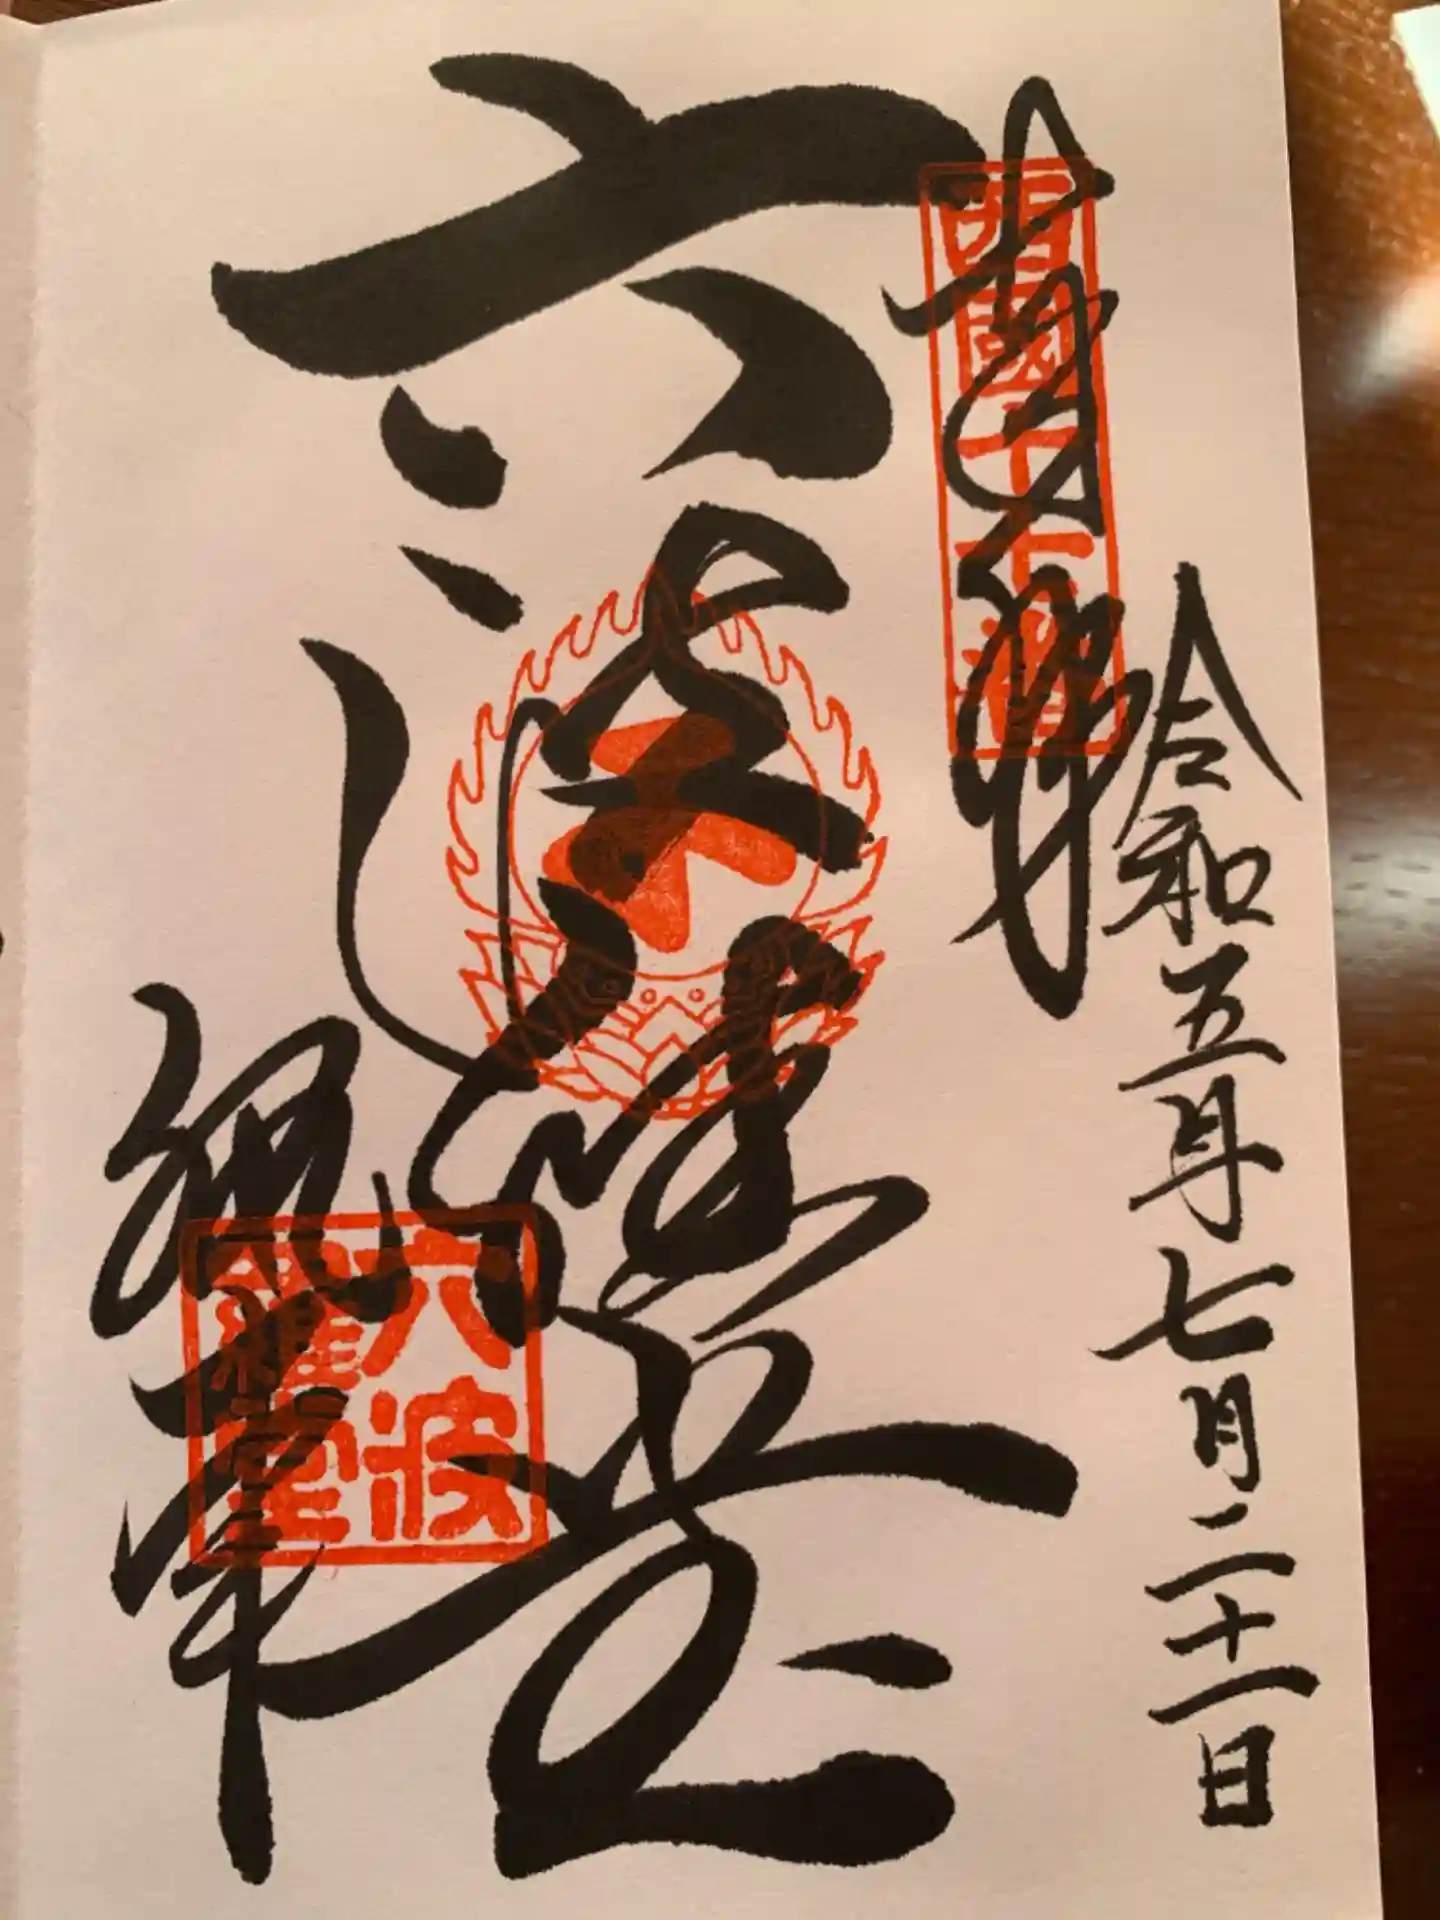 奉拝
西國十七番
令和五年七月二十一日
六波羅堂
六波羅堂